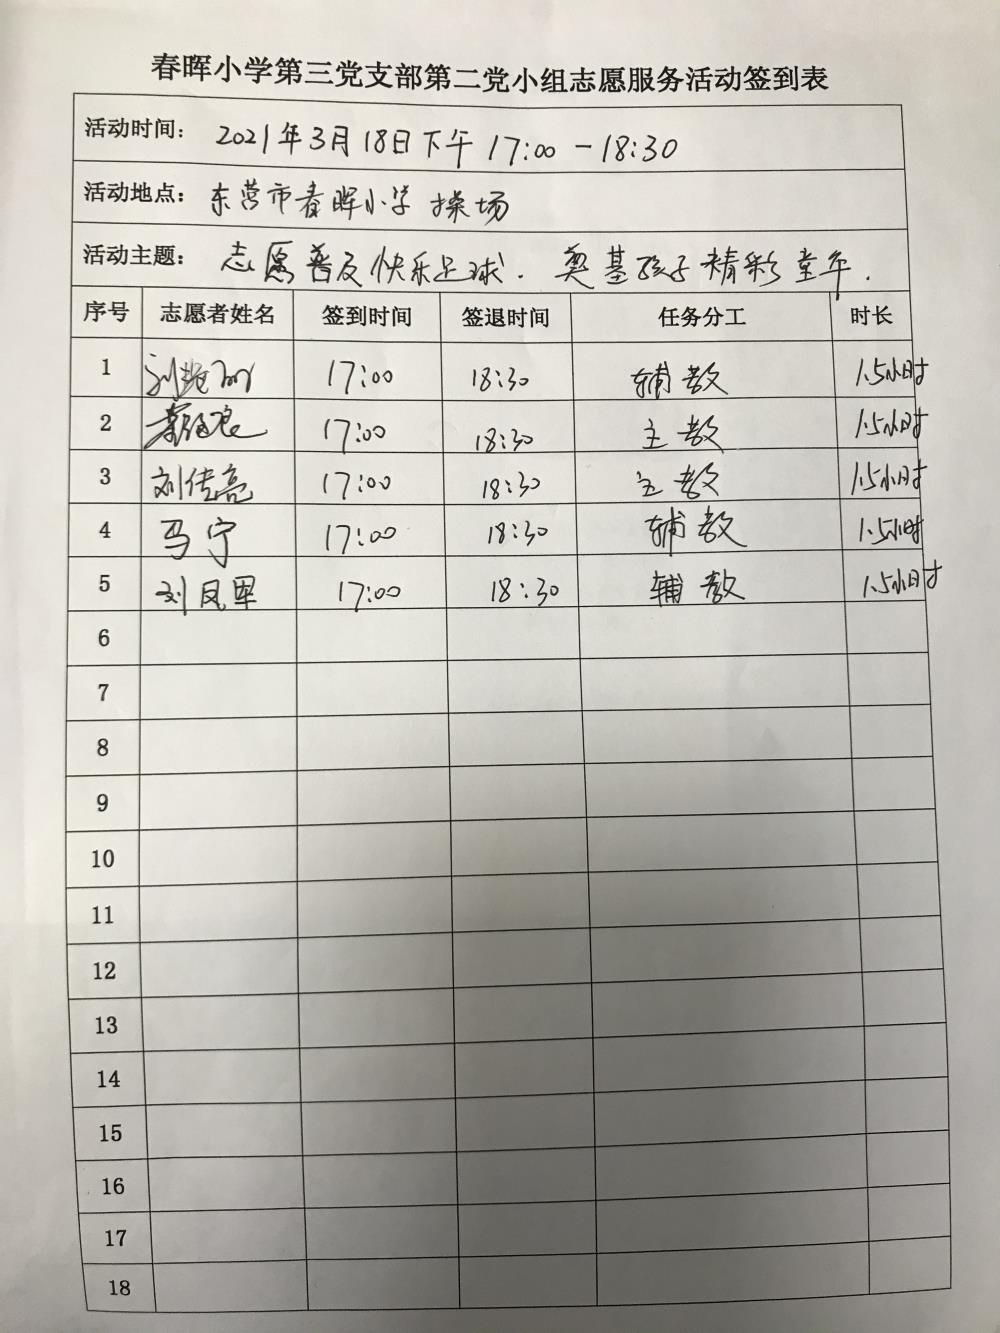 春晖小学第三党支部第二党小组志愿服务活动签到表
活动时间： 2021年3月18日下午 17:00 -18:30
活动地点： 东营市春晖小学 操场
活动主题： 志愿普及快乐足球. 奠基孩子精彩童年.
序号 志愿者姓名 签到时间 签退时间 任务分工 时长
1 17:00 18:30 辅教 1.5小时
2 17:00 18:30 主教 1.5小时
3 刘传亮 17:00 18:30 主教 1.5小时
4 马宁 17:00 18:30 辅教 1.5小时
5 刘凤军 17:00 18:30 辅教 1.5小时
6
7
8
9
10
11
12
13
14
15
16
17
18